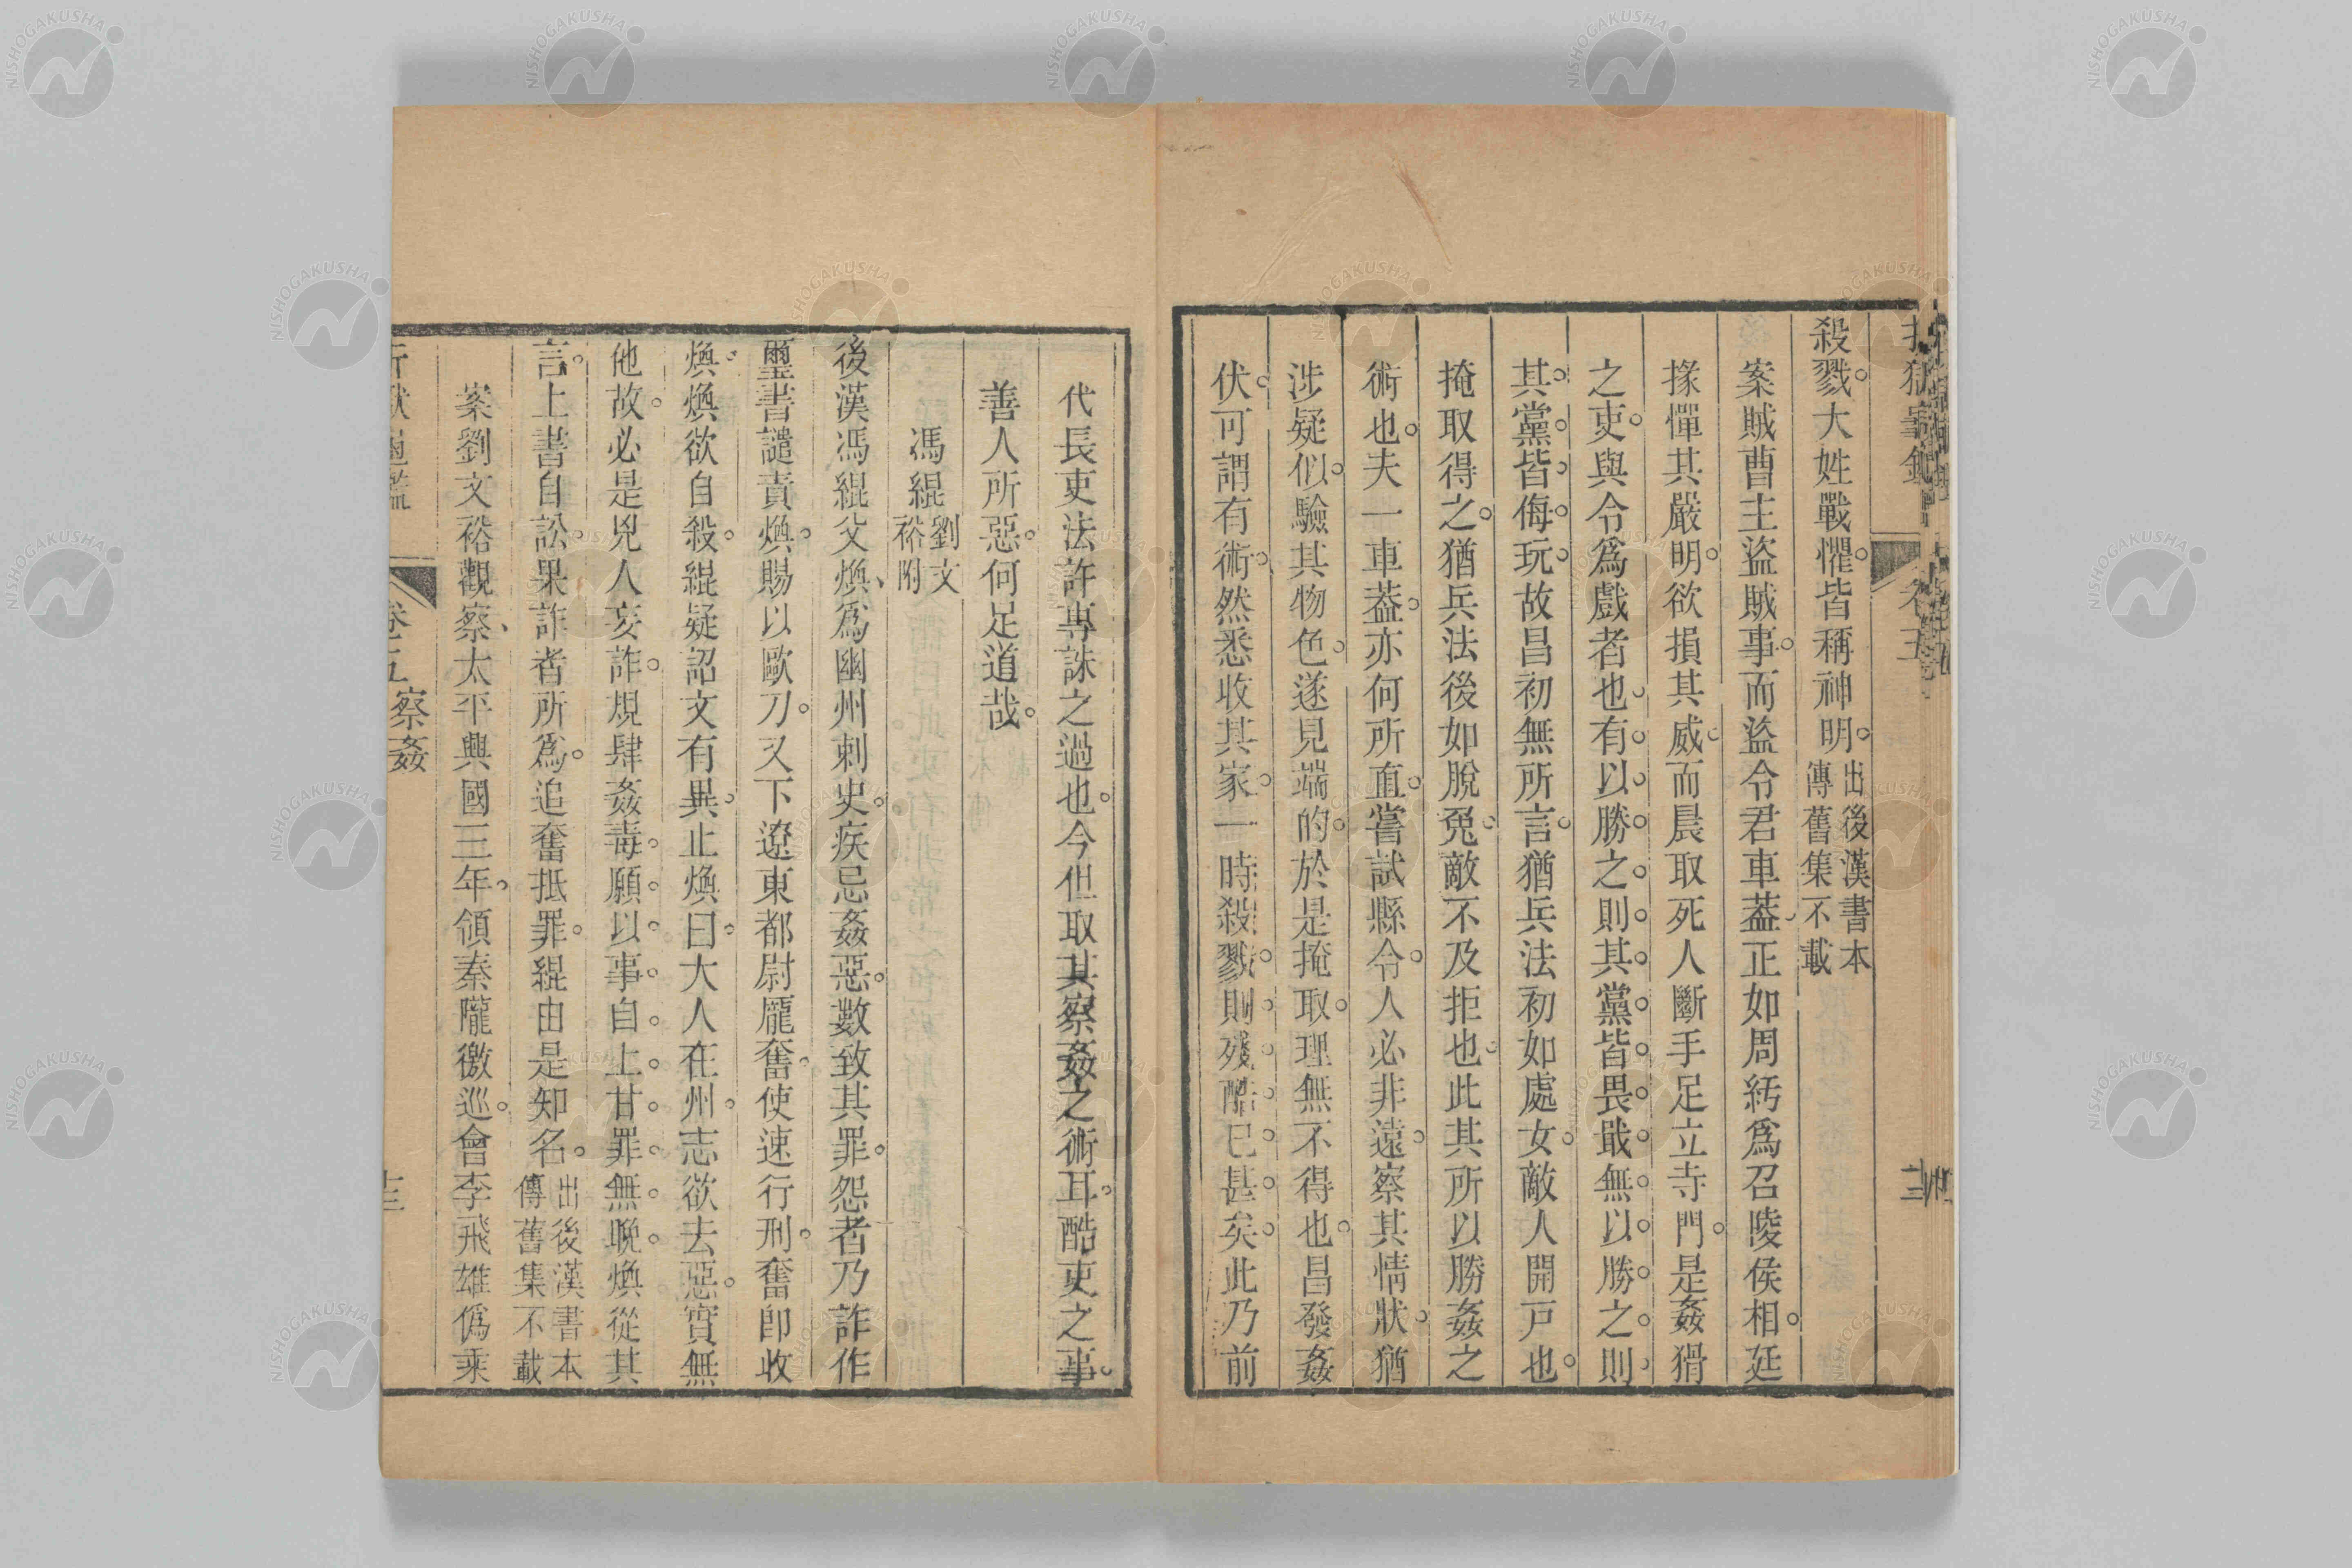 殺戮。大姓戰懼。皆稱神明。出後漢書本傳舊集不載
案賊曹主盜賊事。而盜令君車蓋正如周紆爲召陵侯相。廷
掾憚其嚴明。欲損其威。而晨取死人斷手足立寺門。是姦猾
之吏。與令爲戲者也。有以勝之。則其黨皆畏戢。無以勝之。則
其黨皆侮玩。故昌初無所言。猶兵法初如處女。敵人開戸也。
掩取得之。猶兵法後如脫兔。敵不及拒也。此其所以勝姦之
術也。夫一車蓋。亦何所直。嘗試縣令。人必非遠。察其情狀。猶
涉疑似。驗其物色。遂見端的。於是掩取。理無不得也。昌發姦
伏。可謂有術。然悉收其家。一時殺戮。則殘酷已甚矣。此乃前
代長吏法許專誅之過也。今但取其察姦之術耳。酷吏之事。
善人所惡。何足道哉。
馮緄劉文裕附
後漢馮緄父煥、爲幽州刺史。疾忌姦惡。數致其罪。怨者乃詐作
璽書譴責煥。賜以歐刀。又下遼東都尉龐奮。使速行刑。奮即收
煥。煥欲自殺。緄疑詔文有異。止煥曰。大人在州。志欲去惡。實無
他故。必是兇人妄詐。規肆姦毒。願以事自上。甘罪無晚。煥從其
言。上書自訟。果詐者所爲。追奮抵罪。緄由是知名。出後漢書本傳舊集不載
案劉文裕觀察、太平興國三年。領秦隴徼巡。會李飛雄僞乘
卷五 察姦
十三